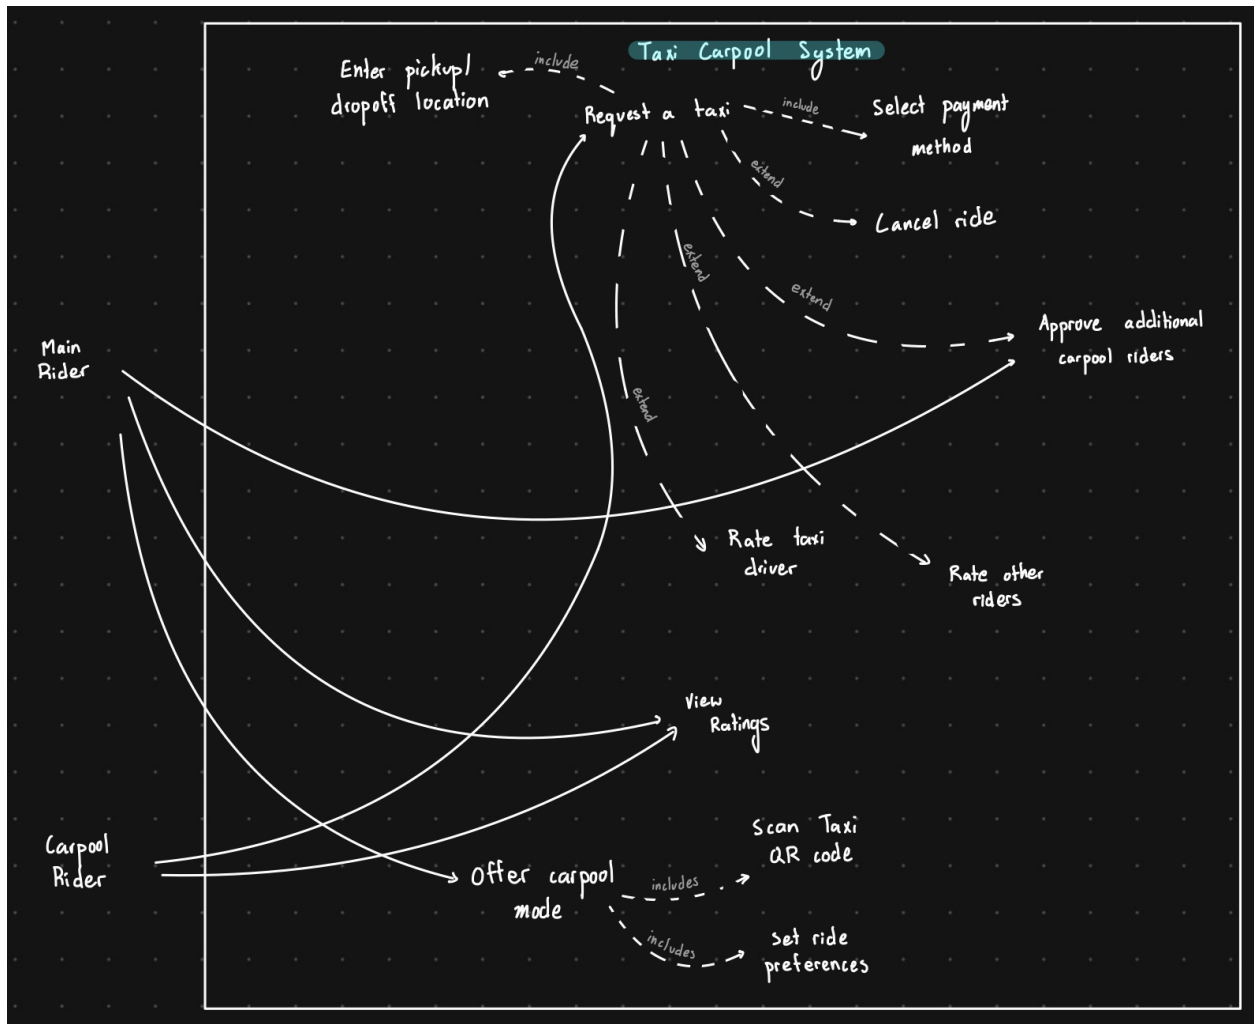 Taxi Carpool System
Enter pickup/
dropoff location
include
Request a taxi
include
Select payment
method
extend
Cancel ride
extend
extend
extend
Approve additional
carpool riders
Main
Rider
Rate taxi
driver
Rate other
riders
View
Ratings
Carpool
Rider
Offer carpool
mode
includes
Scan Taxi
QR code
includes
Set ride
preferences